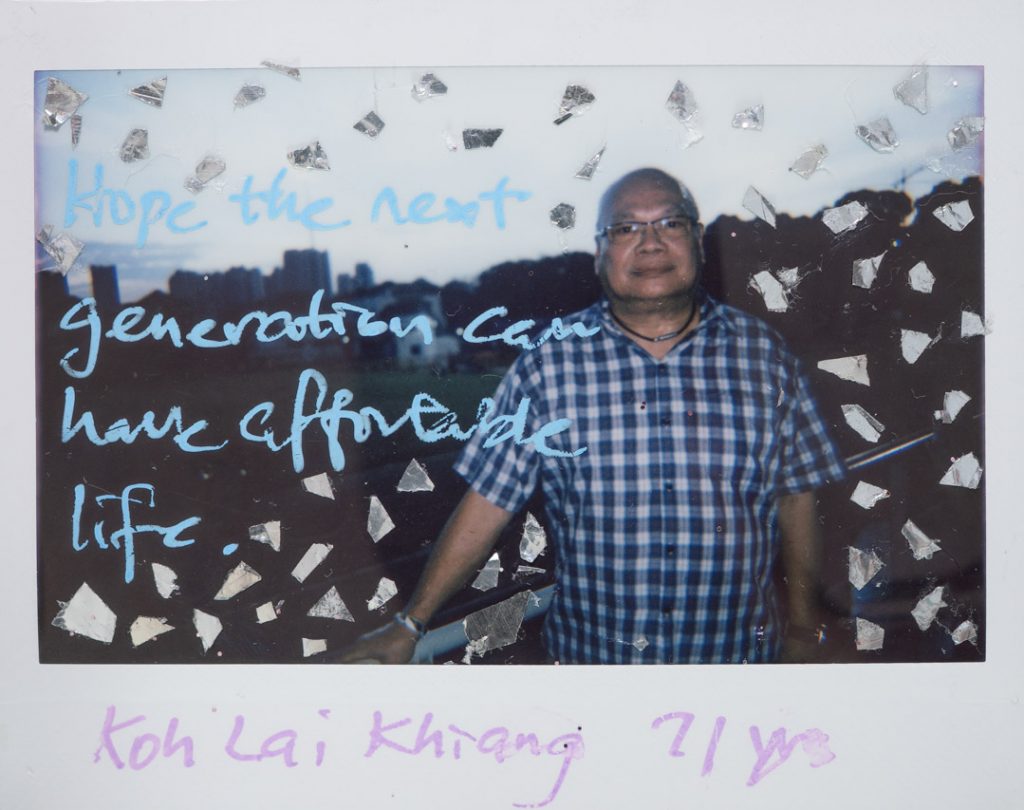 Hope the next
generation can
have affortable
life.
Koh Lai Khiang 71 yrs